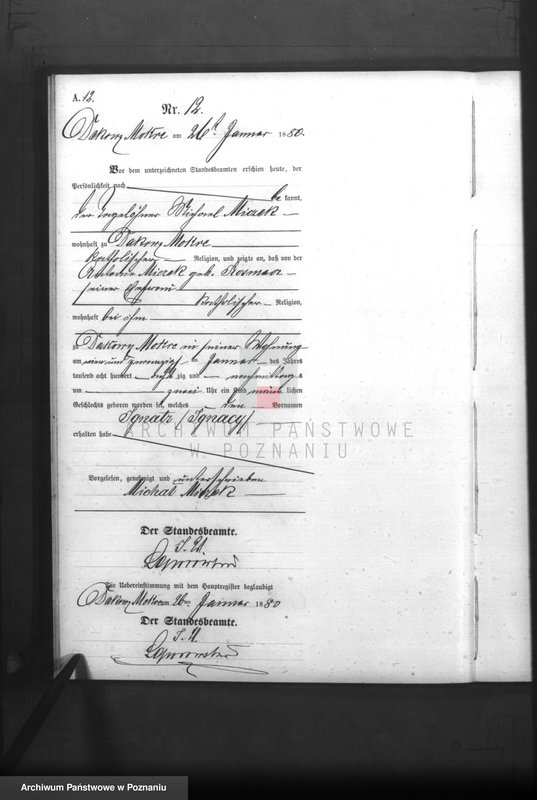 A. 12.
Nr. 12.
Dakowy Mokre am 26ten Januar 1880.
Vor dem unterzeichneten Standesbeamten erschien heute, der
Persönlichkeit nach be kannt,
der Tagelöhner Michael Miczek
wohnhaft zu Dakowy Mokre
katholischer Religion, und zeigte an, daß von der
Antonie Miczek geb. Kosmacz
seiner Ehefrau
katholischer Religion,
wohnhaft bei ihm
zu Dakowy Mokre in seiner Wohnung
am vier und zwanzigsten Januar des Jahres
tausend acht hundert acht zig und nachmittag s
um zwei Uhr ein Kind männ lichen
Geschlechts geboren worden sei, welches den Vornamen
Ignatz (Ignacy)
erhalten habe
ARCHIWUM PAŃSTWOWE
W POZNANIU
Vorgelesen, genehmigt und unterschrieben
Michał Miczek
Der Standesbeamte.
Die Uebereinstimmung mit dem Hauptregister beglaubigt
Dakowy Mokre am 26ten Januar 1880
Der Standesbeamte.
Archiwum Państwowe w Poznaniu